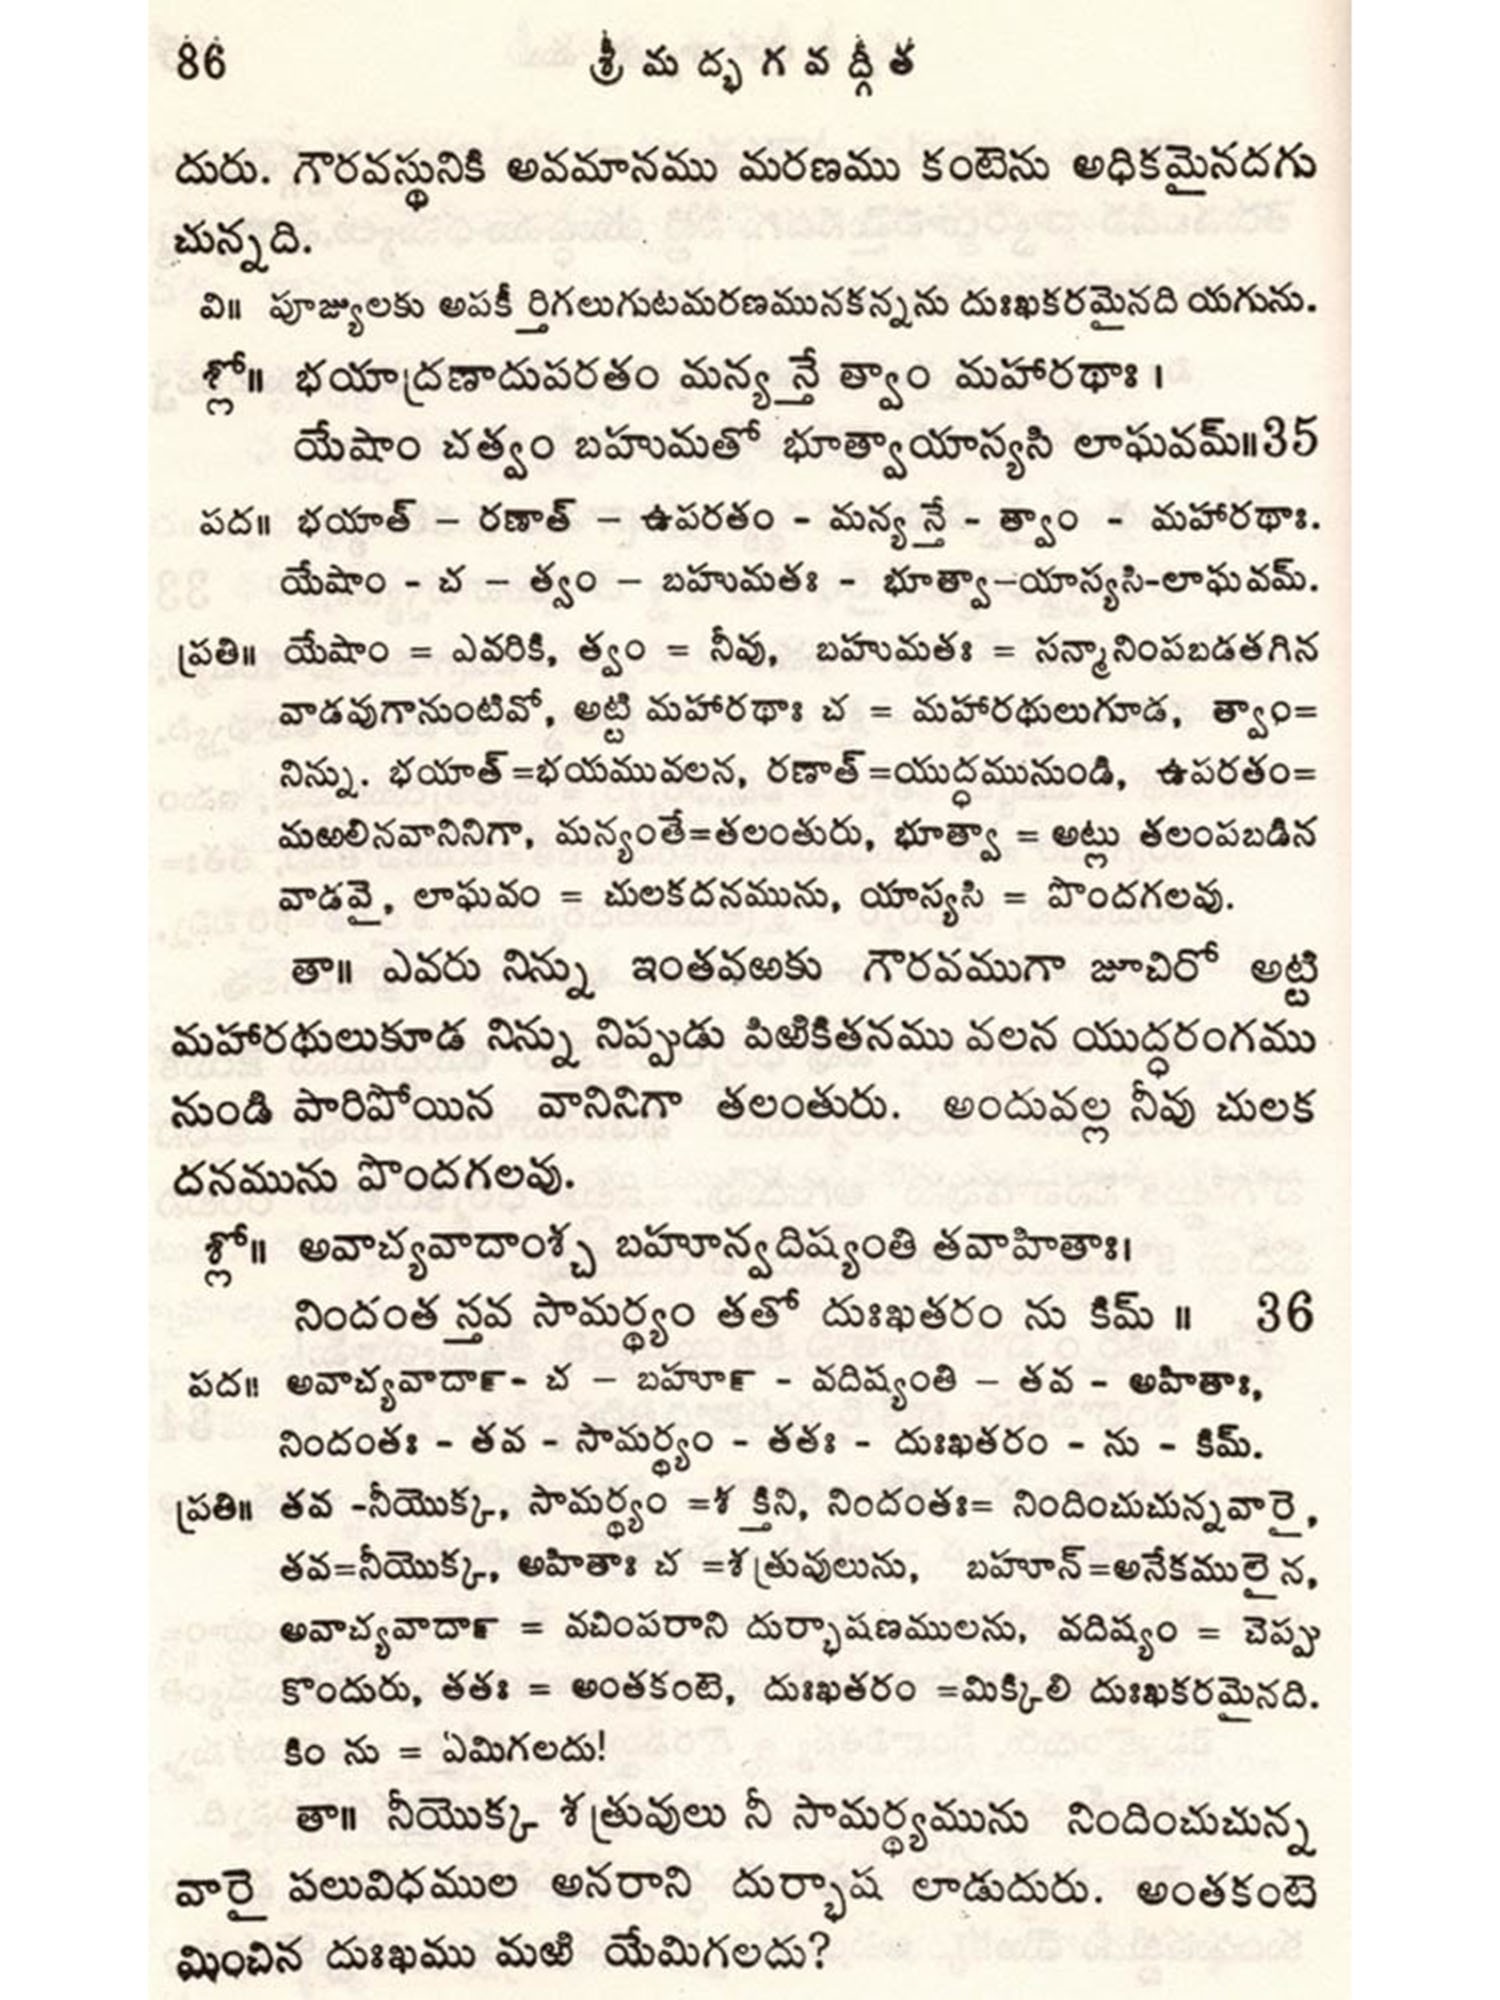 86 శ్రీ మ ద్భ గ వ ద్గీ త
దురు. గౌరవస్థునికి అవమానము మరణము కంటెను అధికమైనదగు
చున్నది.
వి॥ పూజ్యులకు అపకీర్తిగలుగుటమరణమునకన్నను దుఃఖకరమైనది యగును.
శ్లో॥ భయాద్రణాదుపరతం మన్యన్తే త్వాం మహారథాః ।
యేషాం చత్వం బహుమతో భూత్వాయాస్యసి లాఘవమ్॥35
పద॥ భయాత్ – రణాత్ – ఉపరతం - మన్యన్తే - త్వాం - మహారథాః.
యేషాం - చ – త్వం – బహుమతః - భూత్వా–యాస్యసి-లాఘవమ్.
ప్రతి॥ యేషాం = ఎవరికి, త్వం = నీవు, బహుమతః = సన్మానింపబడతగిన
వాడవుగానుంటివో, అట్టి మహారథాః చ = మహారథులుగూడ, త్వాం=
నిన్ను. భయాత్=భయమువలన, రణాత్=యుద్ధమునుండి, ఉపరతం=
మఱలినవానినిగా, మన్యంతే=తలంతురు, భూత్వా = అట్లు తలంపబడిన
వాడవై, లాఘవం = చులకదనమును, యాస్యసి = పొందగలవు.
తా॥ ఎవరు నిన్ను ఇంతవఱకు గౌరవముగా జూచిరో అట్టి
మహారథులుకూడ నిన్ను నిప్పుడు పిఱికితనము వలన యుద్ధరంగము
నుండి పారిపోయిన వానినిగా తలంతురు. అందువల్ల నీవు చులక
దనమును పొందగలవు.
శ్లో॥ అవాచ్యవాదాంశ్చ బహూన్వదిష్యంతి తవాహితాః।
నిందంత స్తవ సామర్థ్యం తతో దుఃఖతరం ను కిమ్ ॥ 36
పద॥ అవాచ్యవాదా౯- చ – బహూ౯ - వదిష్యంతి – తవ - అహితాః,
నిందంతః - తవ - సామర్థ్యం - తతః - దుఃఖతరం - ను - కిమ్.
ప్రతి॥ తవ -నీయొక్క, సామర్థ్యం =శక్తిని, నిందంతః= నిందించుచున్నవారై,
తవ=నీయొక్క, అహితాః చ =శత్రువులును, బహూన్=అనేకములైన,
అవాచ్యవాదా౯ = వచింపరాని దుర్భాషణములను, వదిష్యం = చెప్పు
కొందురు, తతః = అంతకంటె, దుఃఖతరం =మిక్కిలి దుఃఖకరమైనది.
కిం ను = ఏమిగలదు!
తా॥ నీయొక్క శత్రువులు నీ సామర్థ్యమును నిందించుచున్న
వారై పలువిధముల అనరాని దుర్భాష లాడుదురు. అంతకంటె
మించిన దుఃఖము మఱి యేమిగలదు?